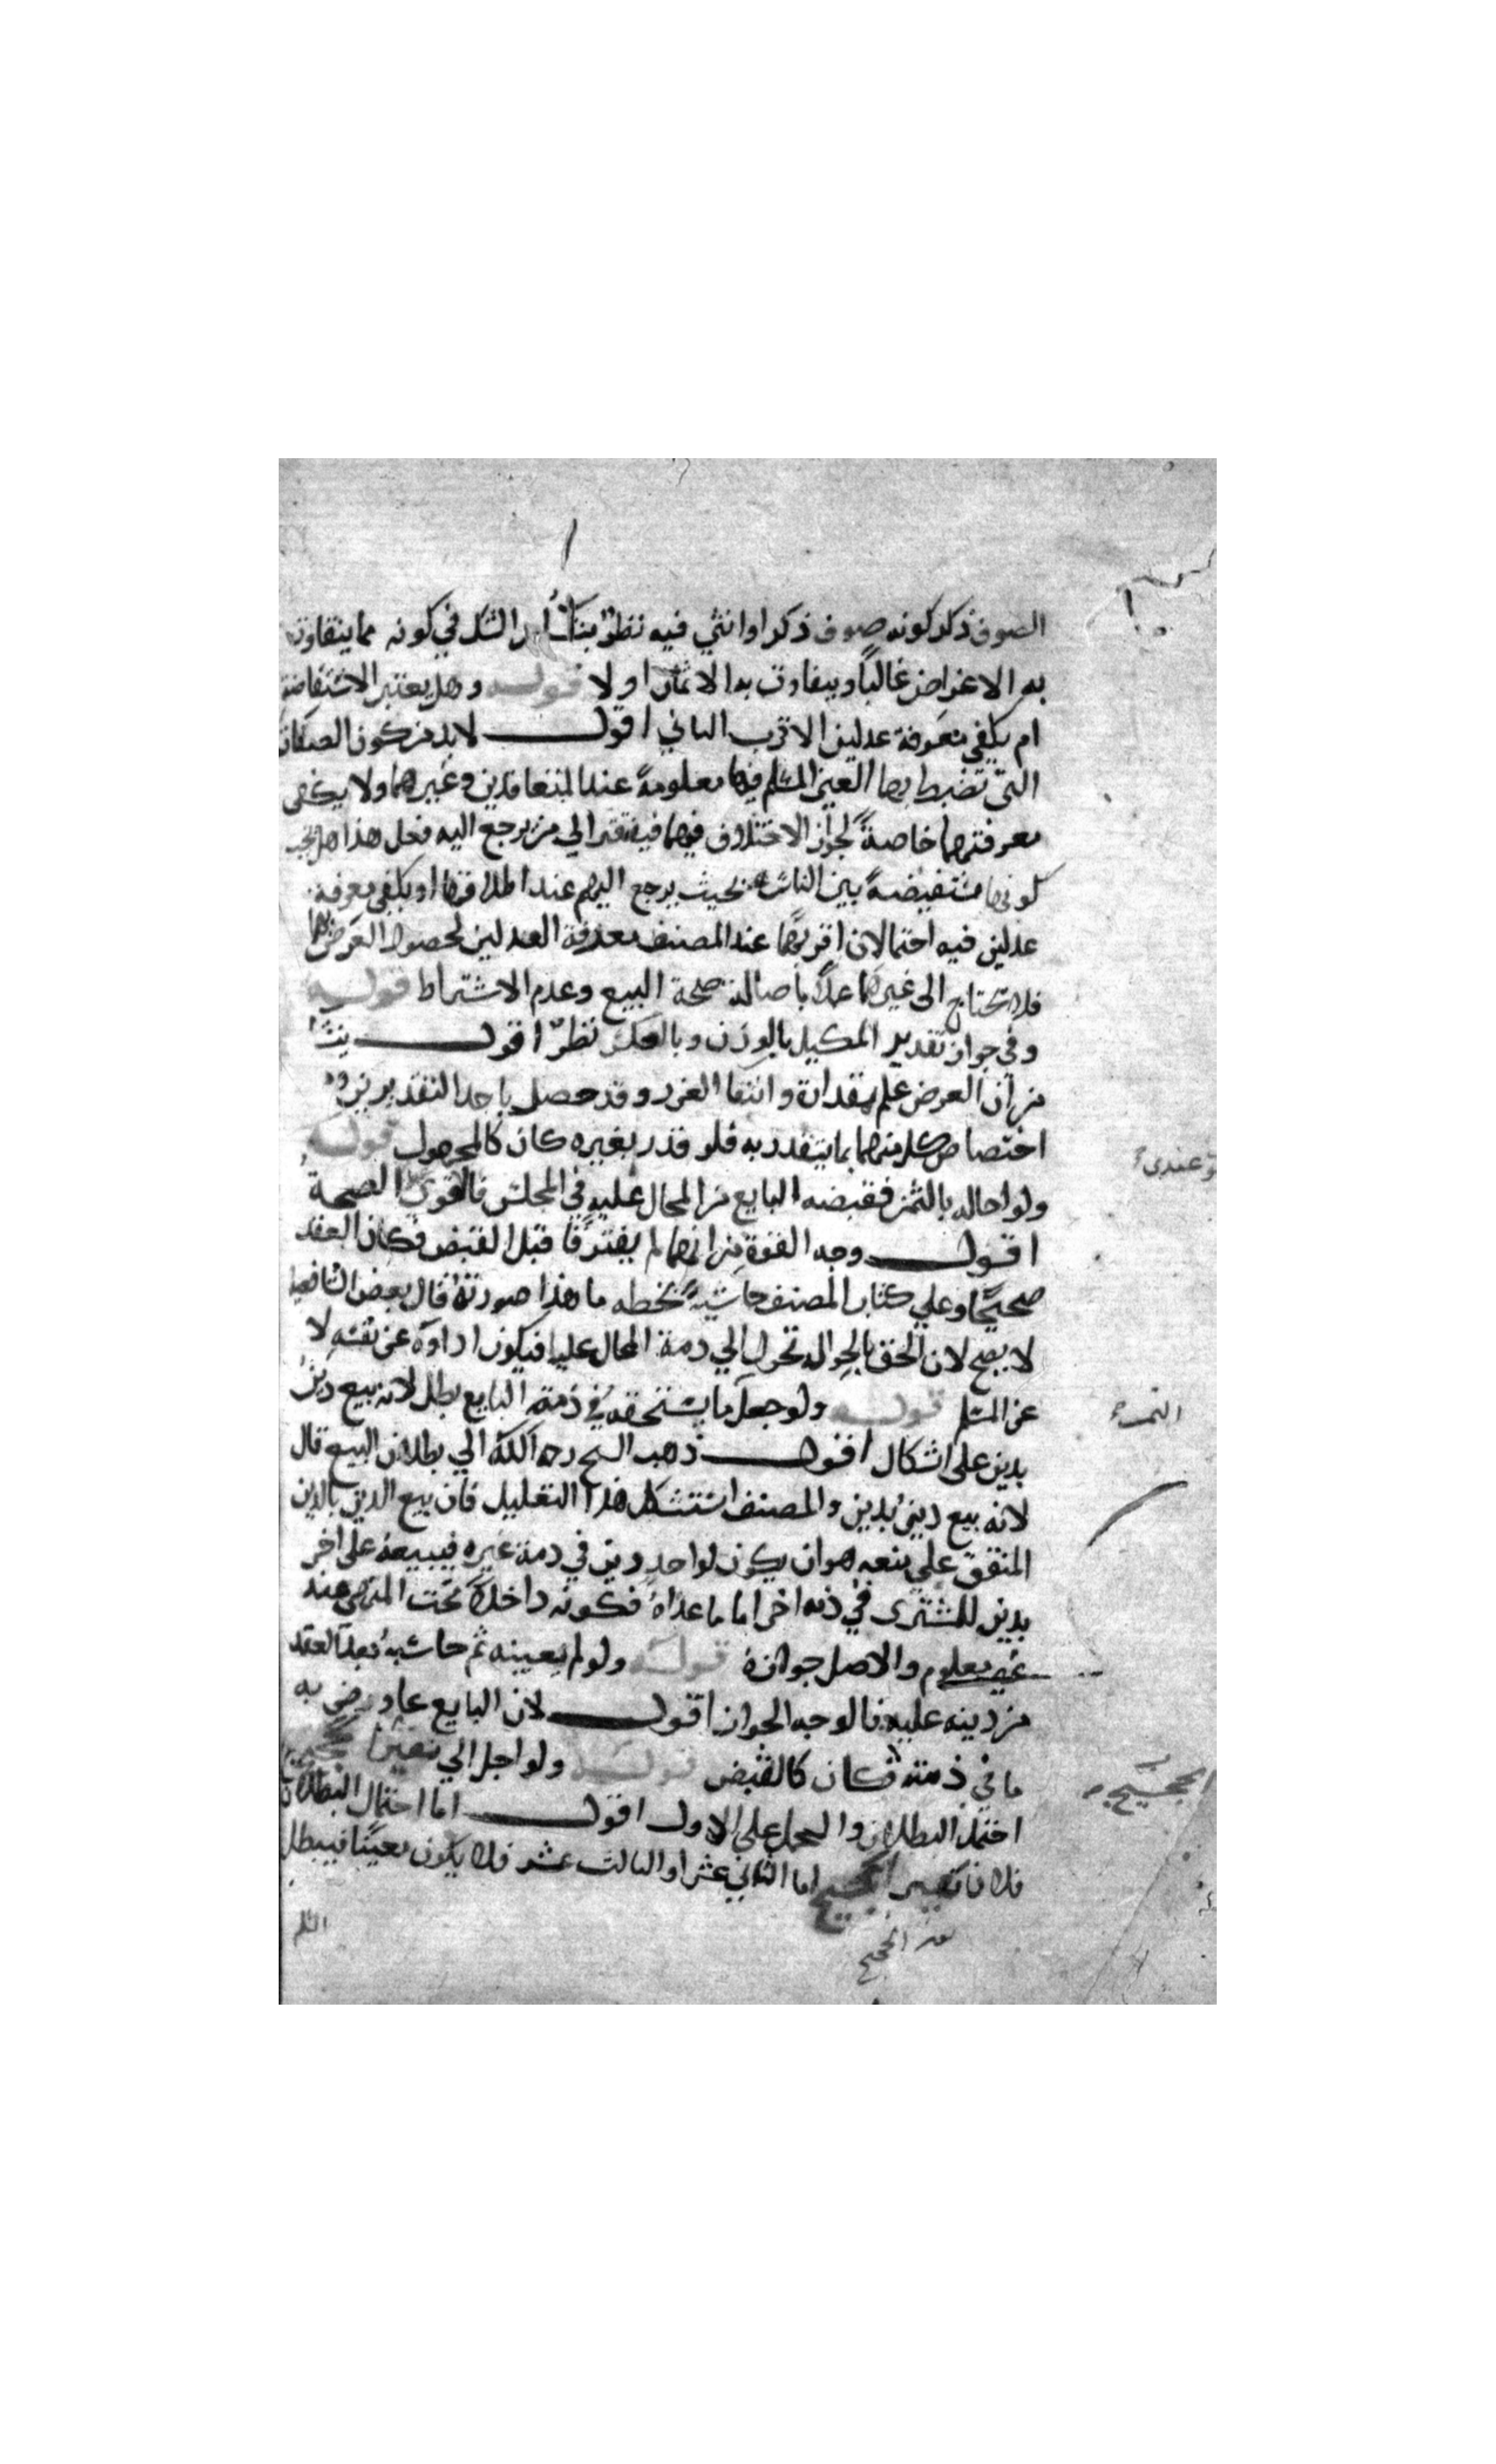 الصوف ذكر كونه صوف ذكر او انثى فيه نظر ينشأ من الشك في كونه مما يتفاوت
به الاغراض غالبًا ويتفاوت به الاثمان او لا قوله وهل يعتبر الاستفاضة
ام يكفي معرفة عدلين الاقرب الثاني اقول لا بد من كون الصفات
التي تضبط بها العين المسلم فيها معلومةً عند المتعاقدين وغيرهما ولا يكفى
معرفتهما خاصةً لجواز الاختلاف فيهما فيفتقر الي من يرجع اليه فحل هذا هل يجب
كونها مستفيضةً بين الناس بحيث يرجع اليهم عند اطلاقها او يكفي معرفة
عدلين فيه احتمالان اقربهما عند المصنف معرفة العدلين لحصول الغرض بهما
فلا تحتاج الى غيرهما عملاً باصالة صحة البيع وعدم الاشتراط قوله
وفي جواز تقدير المكيل بالوزن وبالعكس نظرٌ اقول ينشأ
من ان الغرض علم مقداره وانتفا الغرر وقد حصل باحد التقديرين ومن
اختصاص كل منهما بما يتقدر به فلو قدر بغيره كان كالمجهول قوله
ولو احاله بالثمن فقبضه البايع من المحال عليه في المجلس فالاقوى الصحة
اقول وجه القوة من انهما لم يفترقا قبل القبض فكان العقد
صحيحًا وعلي كتاب المصنف حاشيةٌ بخطه ما هذا صورته قال بعض الشافعية
لا يصح لان الحق بالحواله تحول الي ذمة المحال عليه فيكون اداؤه عن نفسه لا
عن المسلم قوله ولو جعل ما يستحقه في ذمة البايع بطل لانه بيع دين
بدين على اشكال اقول ذهب الشيخ رحمه الله الي بطلان البيع قال
لانه بيع دينٍ بدين والمصنف استشكل هذا التعليل فان بيع الدين بالدين
المتفق علي منعه هو ان يكون لواحد دين في ذمة غيره فيبيعه على اخر
بدين للمشترى في ذمه اخر اما ما عداه فكونه داخلاً تحت المنهي عنه
غير معلوم والاصل جوازه قوله ولو لم يعينه ثم حاسبه بعد العقد
من دينه عليه فالوجه الجواز اقول لان البايع عاد رضى به
ما في ذمته فكان كالقبض قوله ولو اجل الي نفير الحجيج
احتمل البطلان والحمل على الاول اقول اما احتمال البطلان
فلان نفير الحجيج اما الثاني عشر او الثالث عشر فلا يكون معينًا فيبطل
نفر الحجيج
السلم
عندى
الثمن
الحجيج